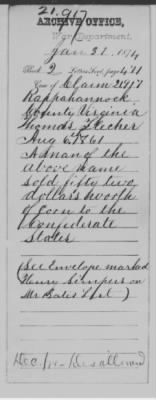 21.917
ARCHIVE OFFICE,
War Department.
Jan 31 1874
Book 2 Letters Recd, page 471
Case of Claim 21917
Rappahannock
County Virginia
Thomas Flecher
Aug 6, 1861
A man of the
above name
sold fifty two
dollars worth
of Corn to the
Confederate
States
(See Envelope marked
Henry Simpers on
Mr Bates' List)
Dec.